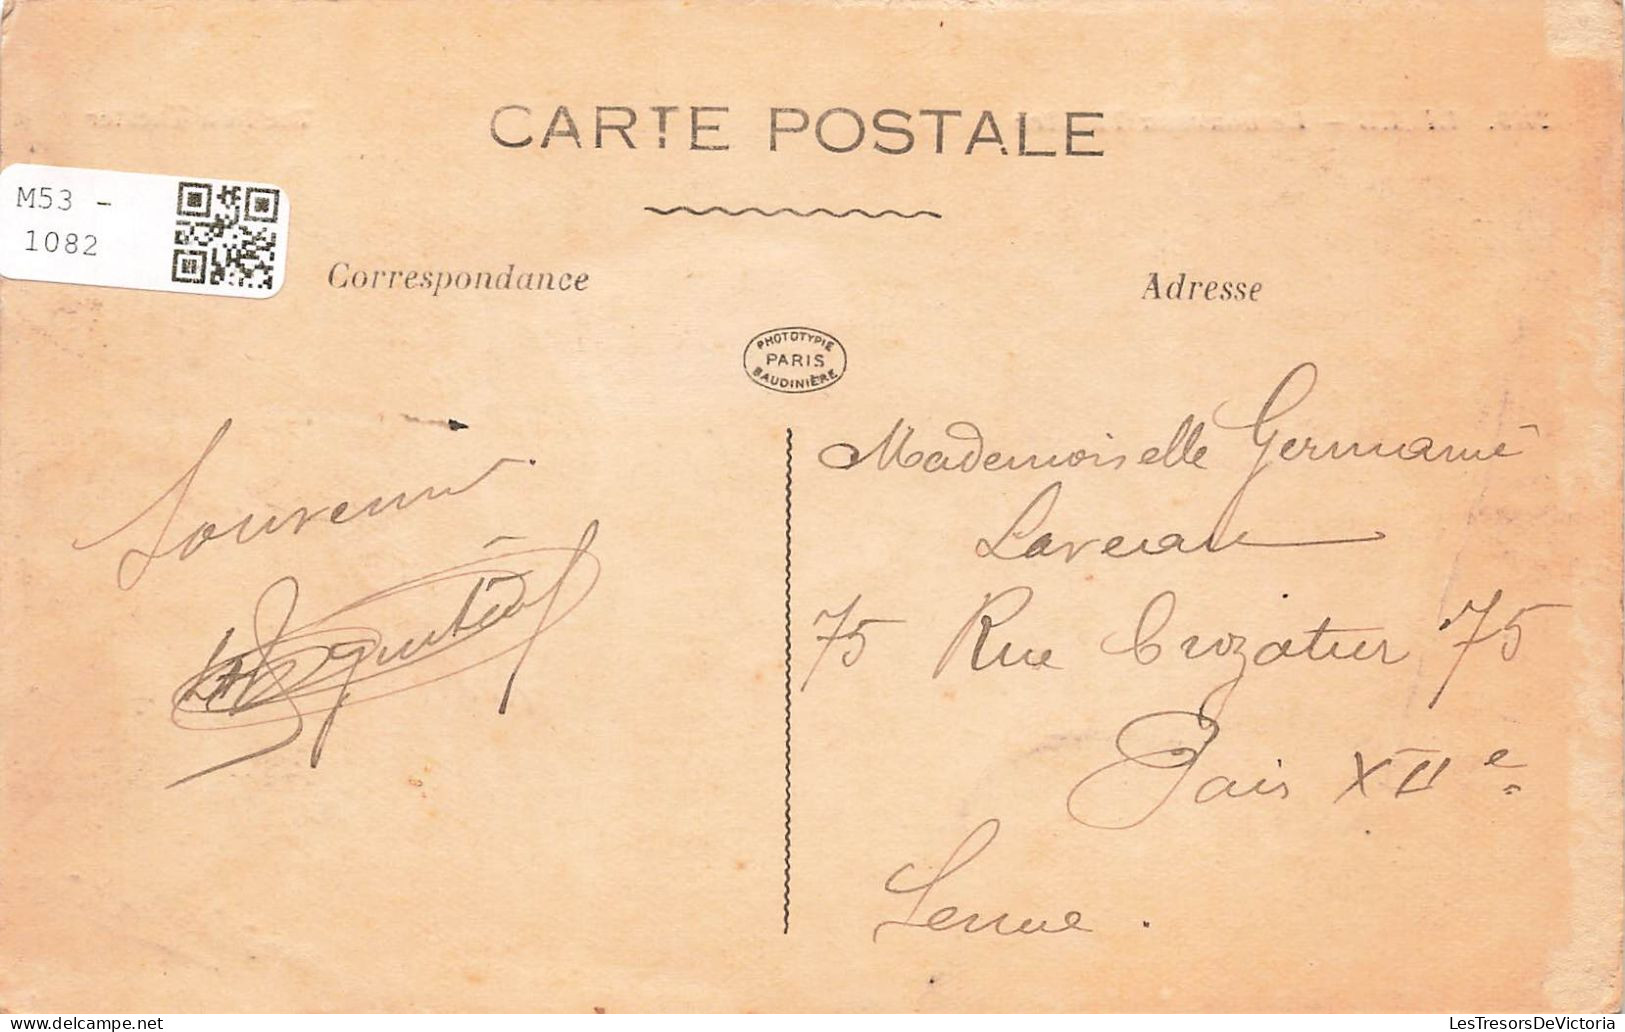 CARTE POSTALE
M53 -
1082
Correspondance
Adresse
PHOTOTYPIE
PARIS
BAUDINIÈRE
Souvenir
Mademoiselle Germaine
Laveau
75 Rue Crozatier 75
Paris XIIe
Seine.
LesTresorsDeVictoria